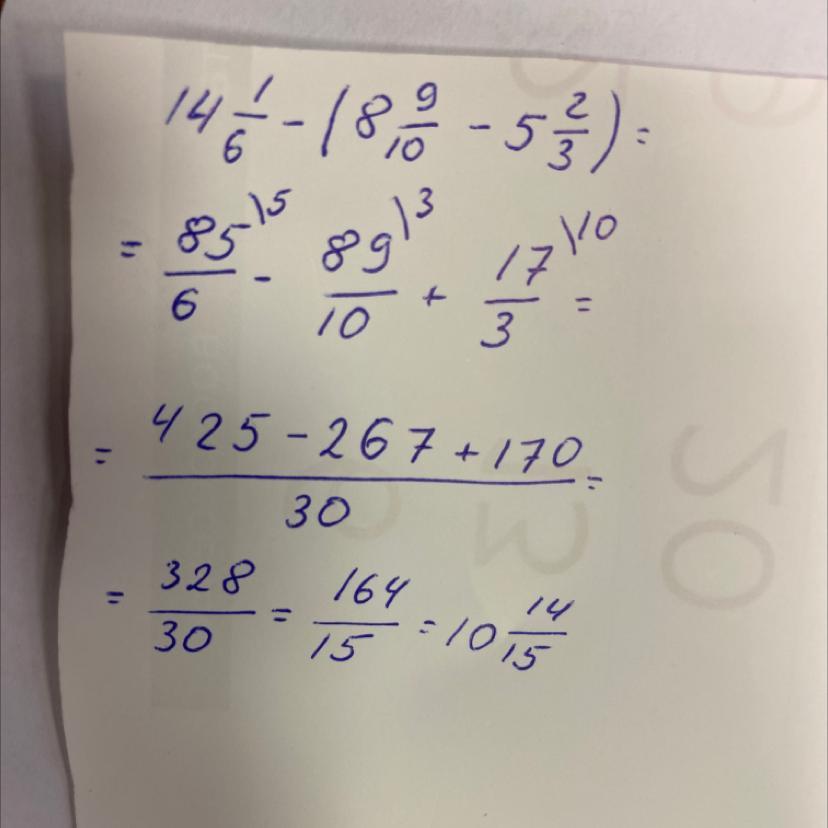 14 1/6 - (8 9/10 - 5 2/3) =
= 85\5/6 - 89\3/10 + 17\10/3 =
= 425 - 267 + 170/30 =
= 328/30 = 164/15 = 10 14/15